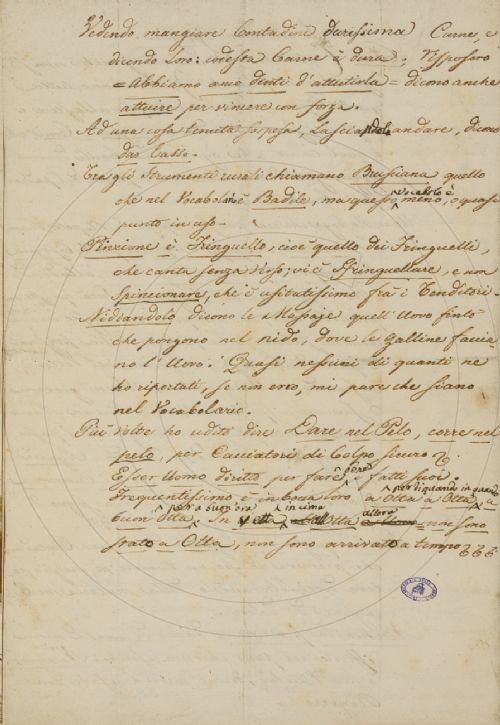 Vedendo mangiare Contadini durissima Carne, e
dicendo loro: codesta Carne è dura; risposero
= Abbiamo denti d'attutirla = dicono anche
attuire per vincere con forza.
Ad una cosa tenuta sospesa, lasciandola andare, dicono
dar lasso.
Tra gli Strumenti rurali chiamano Brusiana quello
che nel Vocabolario è Badile, ma questo vocabolo è meno, o quasi
punto in uso.
Pinzione è Fringuello, cioè quello dei Fringuelli,
che canta senza verso; vi è Sfringuellare, e non
Spincionare, che è usitatissimo fra i Tenditori.
Nidiandolo dicono le Massaje quell'Uovo finto
che pongono nel nido, dove le galline faccia-
no l'Uovo. Quasi nessuni di quanti ne
ho riportati, se non erro, mi pare che siano
nel Vocabolario.
Più volte ho udito dire Dare nel Pelo, corre nel
pelo, per Cacciatori di Colpo sicuro
Esser Uomo diritto per fare i fatti suoi.
Frequentissimo è in bocca loro a Otta a Otta, per di quando in quando a
buon'Otta, per a buon'ora. In vetta, in cima Otta allora non sono
stato a Otta, non sono arrivato a tempo